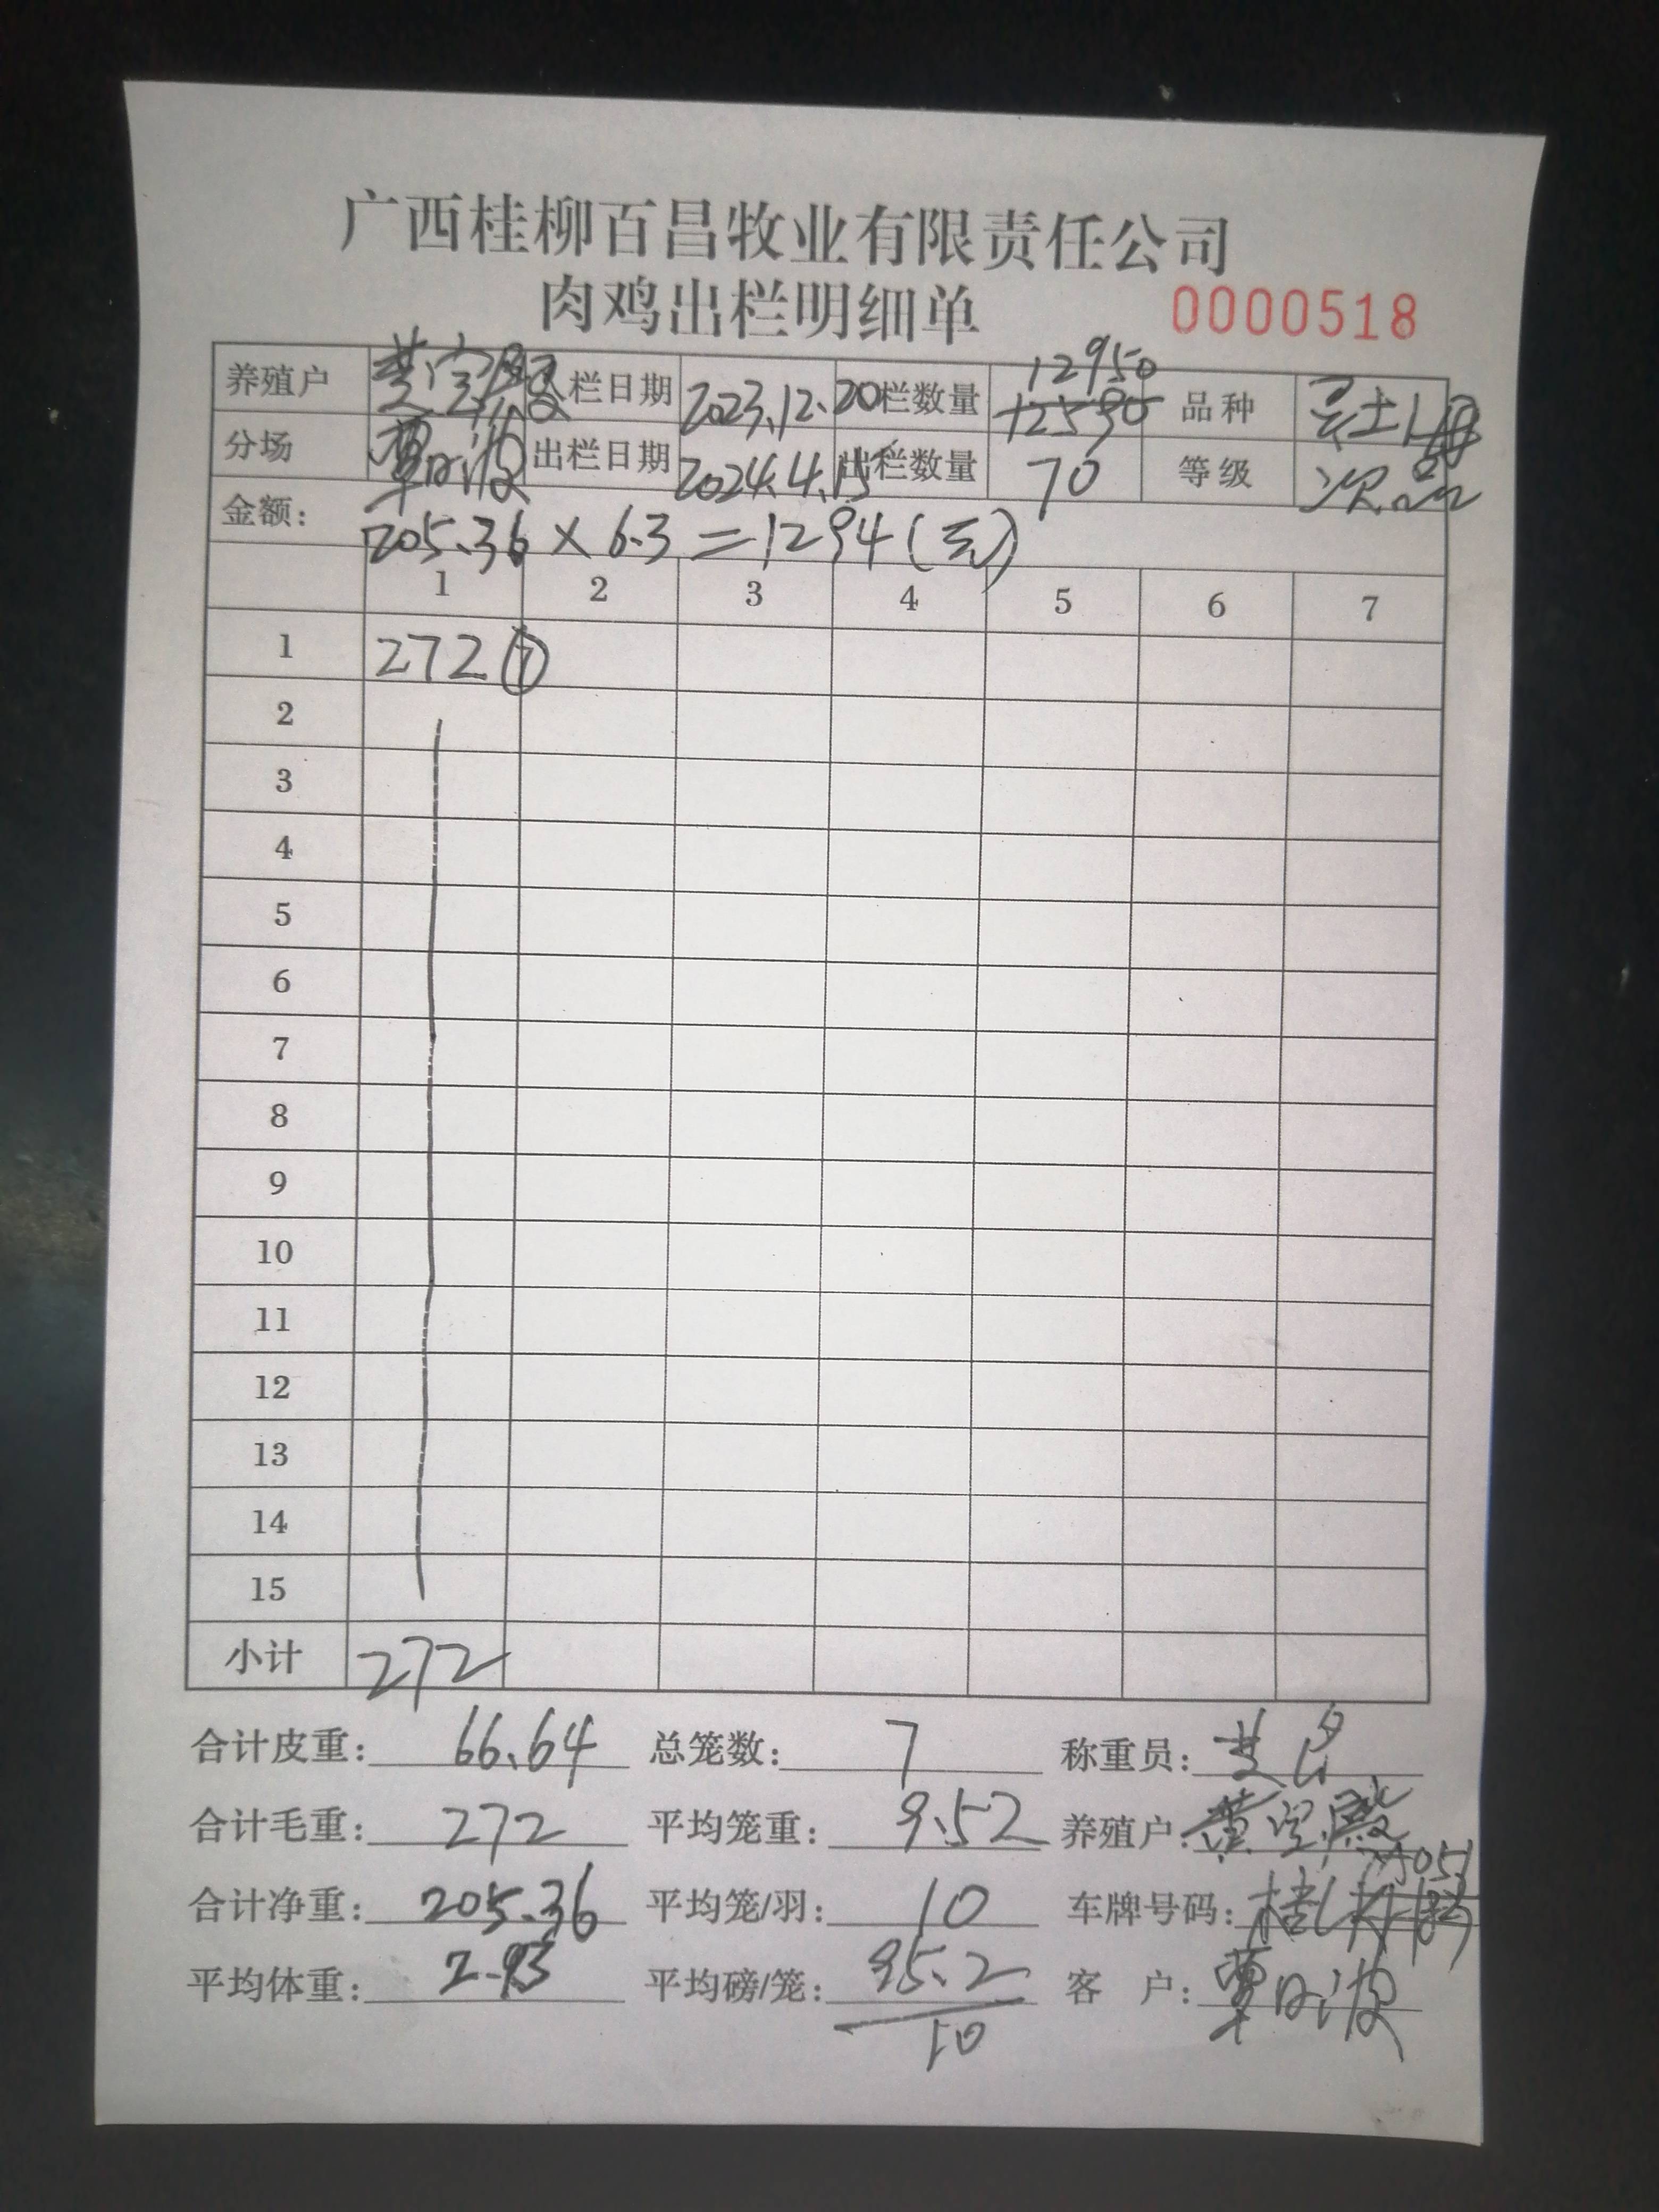 广西桂柳百昌牧业有限责任公司
肉鸡出栏明细单 0000518
12950
养殖户 入栏日期 2023.12.20 入栏数量 12590 品种 土
分场 覃日波 出栏日期 2024.4.15 出栏数量 70 等级 次品
金额: 205.36 × 6.3 = 1294 (元)
1 2 3 4 5 6 7
1 272 ⑦
2
3
4
5
6
7
8
9
10
11
12
13
14
15
小计 272
合计皮重: 66.64 总笼数: 7 称重员:
合计毛重: 272 平均笼重: 9.52 养殖户:
合计净重: 205.36 平均笼/羽: 10 车牌号码: 桂
平均体重: 2.93 平均磅/笼: 95.2 客 户: 覃日波
10